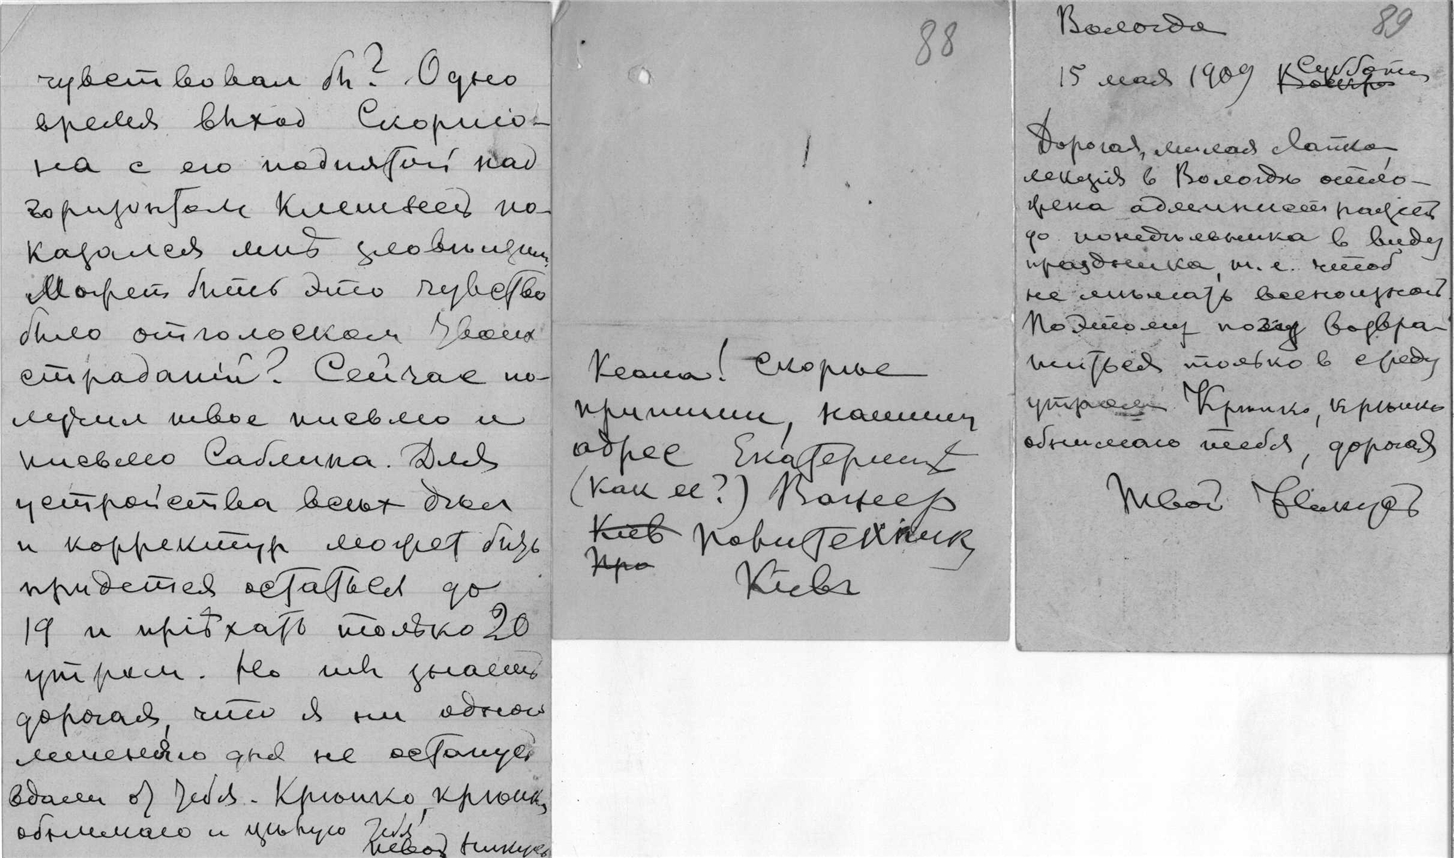 чувствовал бы? Одно
время выход Скорпіо-
на с его поднятой над
горизонтом Клешней по-
казался мнѣ зловѣщим.
Может быть это чувство
было отголоском твоих
страданій? Сейчас по-
лучил твое письмо и
письмо Саблина. Для
устройства всѣх дѣл
и корректур может быть
придется остаться до
19 и пріѣхать только 20
утром. Но ты знаешь
дорогая, что я ни одного
лишняго дня не останусь
вдали от тебя. Крѣпко, крѣпко
обнимаю и цѣлую тебя
твой
88
! Скорѣе
пришли, напиши
адрес Екатерины
(как ее?) Вагнер
Кіев Политехникум
Про
Кіевъ
89
Вологда
15 мая 1909 Суббота
Дорогая, милая
лекція в Вологдѣ отло-
жена администраціей
до понедѣльника в виду
праздника, т. е. чтоб
не мѣшать всенощной
Поэтому возвра-
титься только в среду
утром Крѣпко, крѣпко
обнимаю тебя, дорогая
Твой